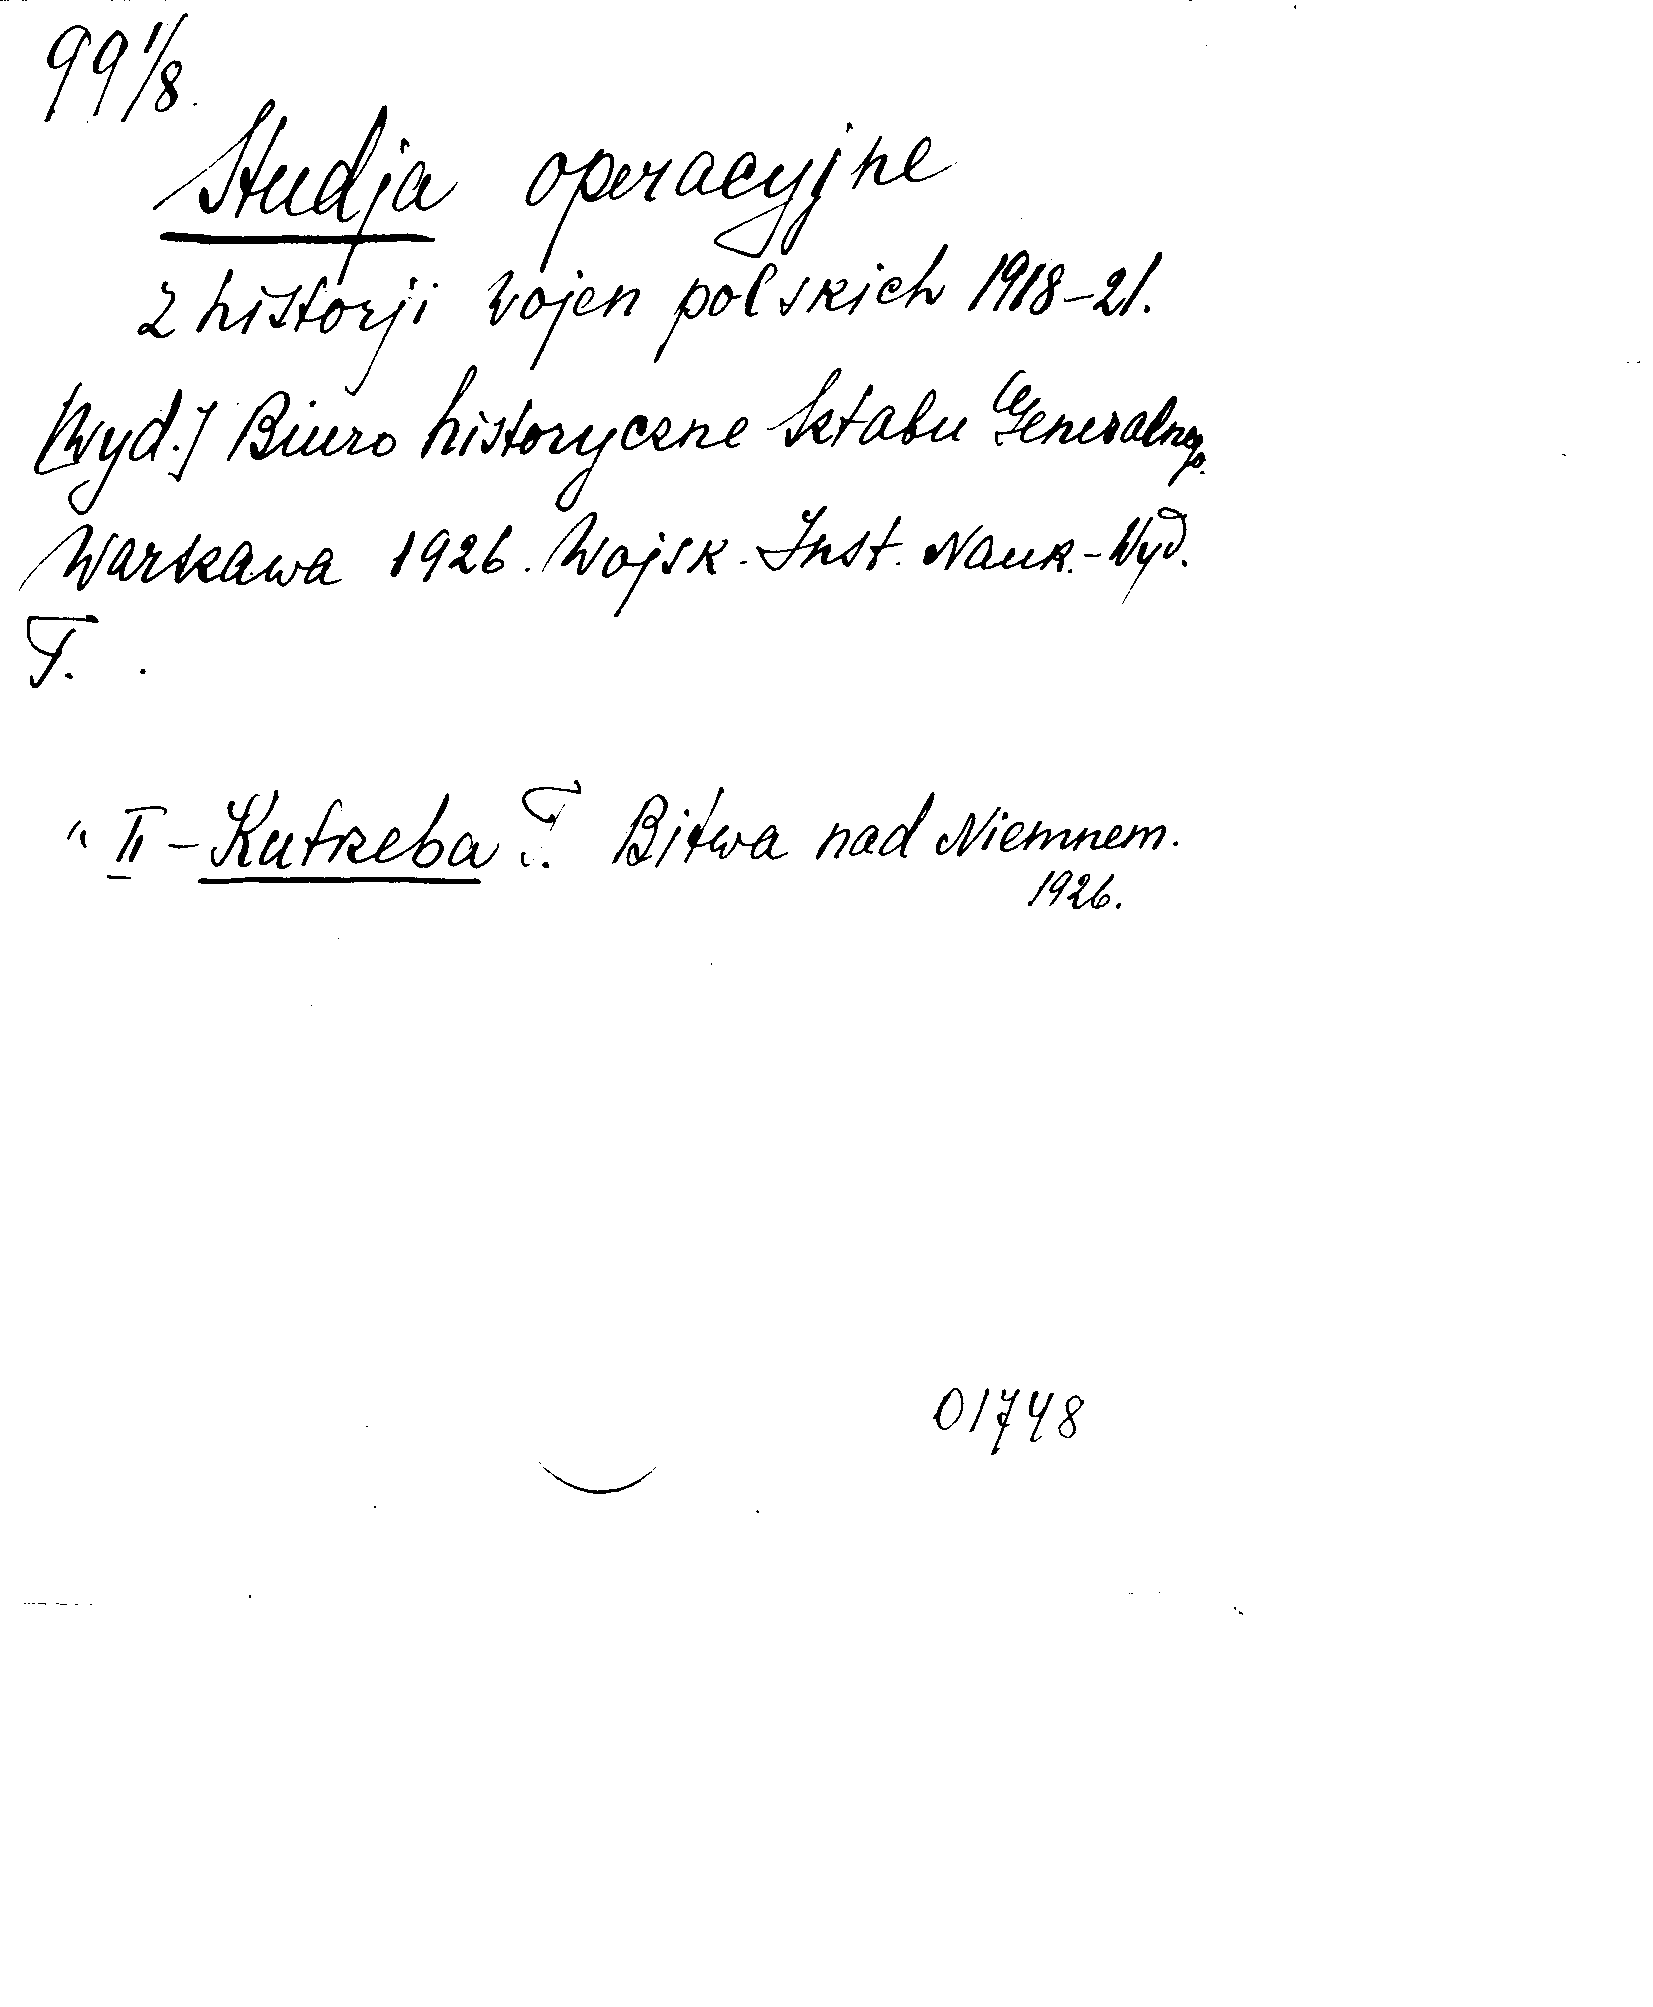 99 1/8.
Studja operacyjne
z historji wojen polskich 1918-21.
[Wyd.] Biuro historyczne Sztabu Generalnego.
Warszawa 1926. Wojsk. Inst. Nauk.-Wyd.
T. .
" II - Kutrzeba T. Bitwa nad Niemnem.
1926.
01748